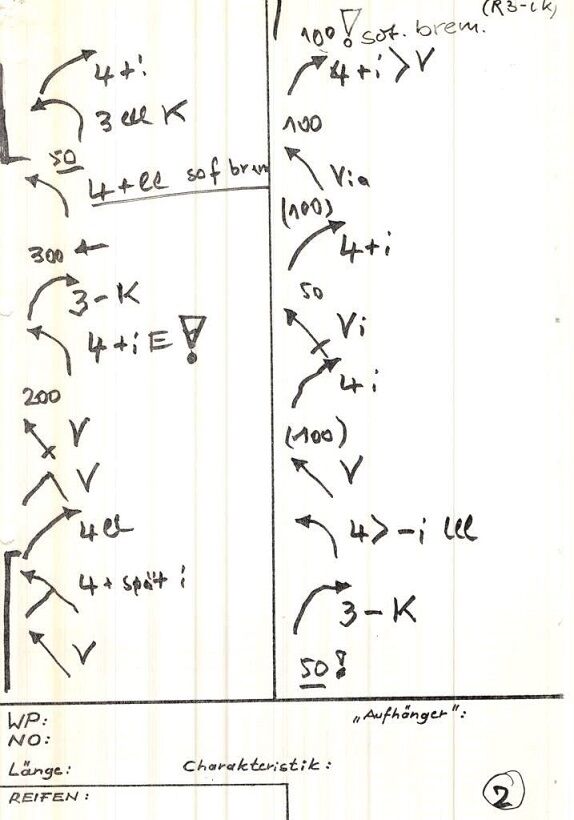 4+i
3 lll K
50
4+ll sof brem
300
3-K
4+i E !
200
V
V
4ll
4+ spät i
V
(R3-lk)
100! sof. brem.
4+i > V
100
Via
(100)
4+i
50
Vi
4i
(100)
V
4>-i lll
3-K
50!
WP:
NO:
Länge:
Charakteristik:
"Aufhänger":
REIFEN:
2